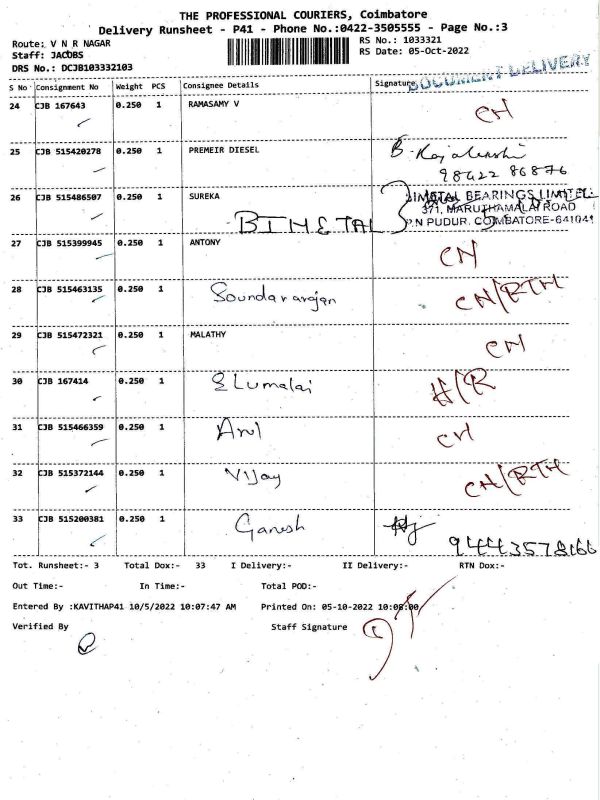 THE PROFESSIONAL COURIERS, Coimbatore
Delivery Runsheet - P41 - Phone No.:0422-3505555 - Page No.:3
Route: V N R NAGAR RS No.: 1033321
Staff: JACOBS RS Date: 05-Oct-2022
DRS No.: DCJB103332103
DOCUMENT DELIVERY
S No Consignment No Weight PCS Consignee Details Signature
24 CJB 167643 0.250 1 RAMASAMY V CH
25 CJB 515420278 0.250 1 PREMEIR DIESEL B.
98422 86876
26 CJB 515486507 0.250 1 SUREKA BIMETAL BEARINGS LIMITED
371, MARUTHAMALAI ROAD
BIMETAL P.N PUDUR, COIMBATORE-641041
27 CJB 515399945 0.250 1 ANTONY CH
28 CJB 515463135 0.250 1 Soundararajan CH/RTH
29 CJB 515472321 0.250 1 MALATHY CH
30 CJB 167414 0.250 1 Elumalai H/R
31 CJB 515466359 0.250 1 Arul CH
32 CJB 515372144 0.250 1 Vijay CH/RTH
33 CJB 515200381 0.250 1 Ganesh
94443578166
Tot. Runsheet:- 3 Total Dox:- 33 I Delivery:- II Delivery:- RTN Dox:-
Out Time:- In Time:- Total POD:-
Entered By :KAVITHAP41 10/5/2022 10:07:47 AM Printed On: 05-10-2022 10:08:00
Verified By Staff Signature